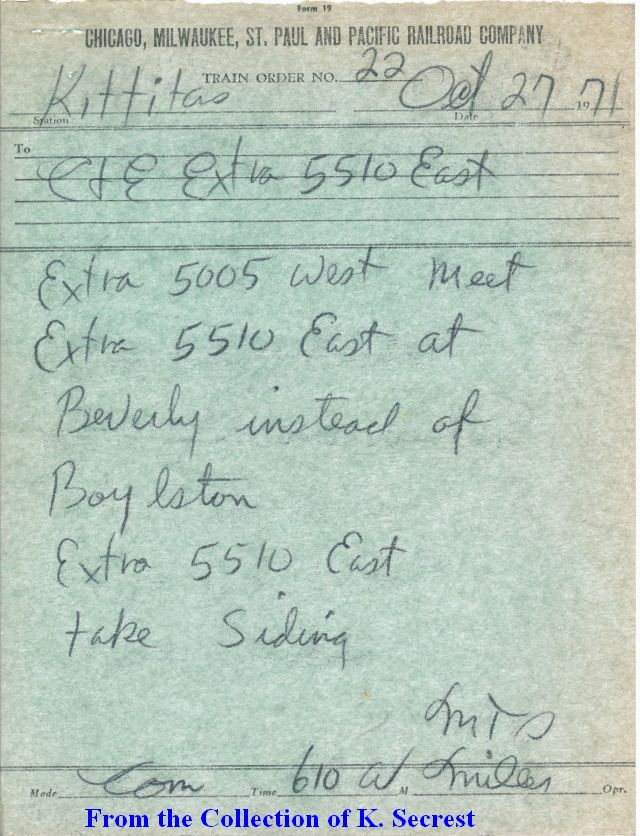 Form 19
CHICAGO, MILWAUKEE, ST. PAUL AND PACIFIC RAILROAD COMPANY
TRAIN ORDER NO. 22
Kittitas Oct 27 1971
Station Date
To
C&E Extra 5510 East
Extra 5005 West Meet
Extra 5510 East at
Beverly instead of
Boylston
Extra 5510 East
take Siding
Made Com Time 610 A M Miller Opr.
From the Collection of K. Secrest